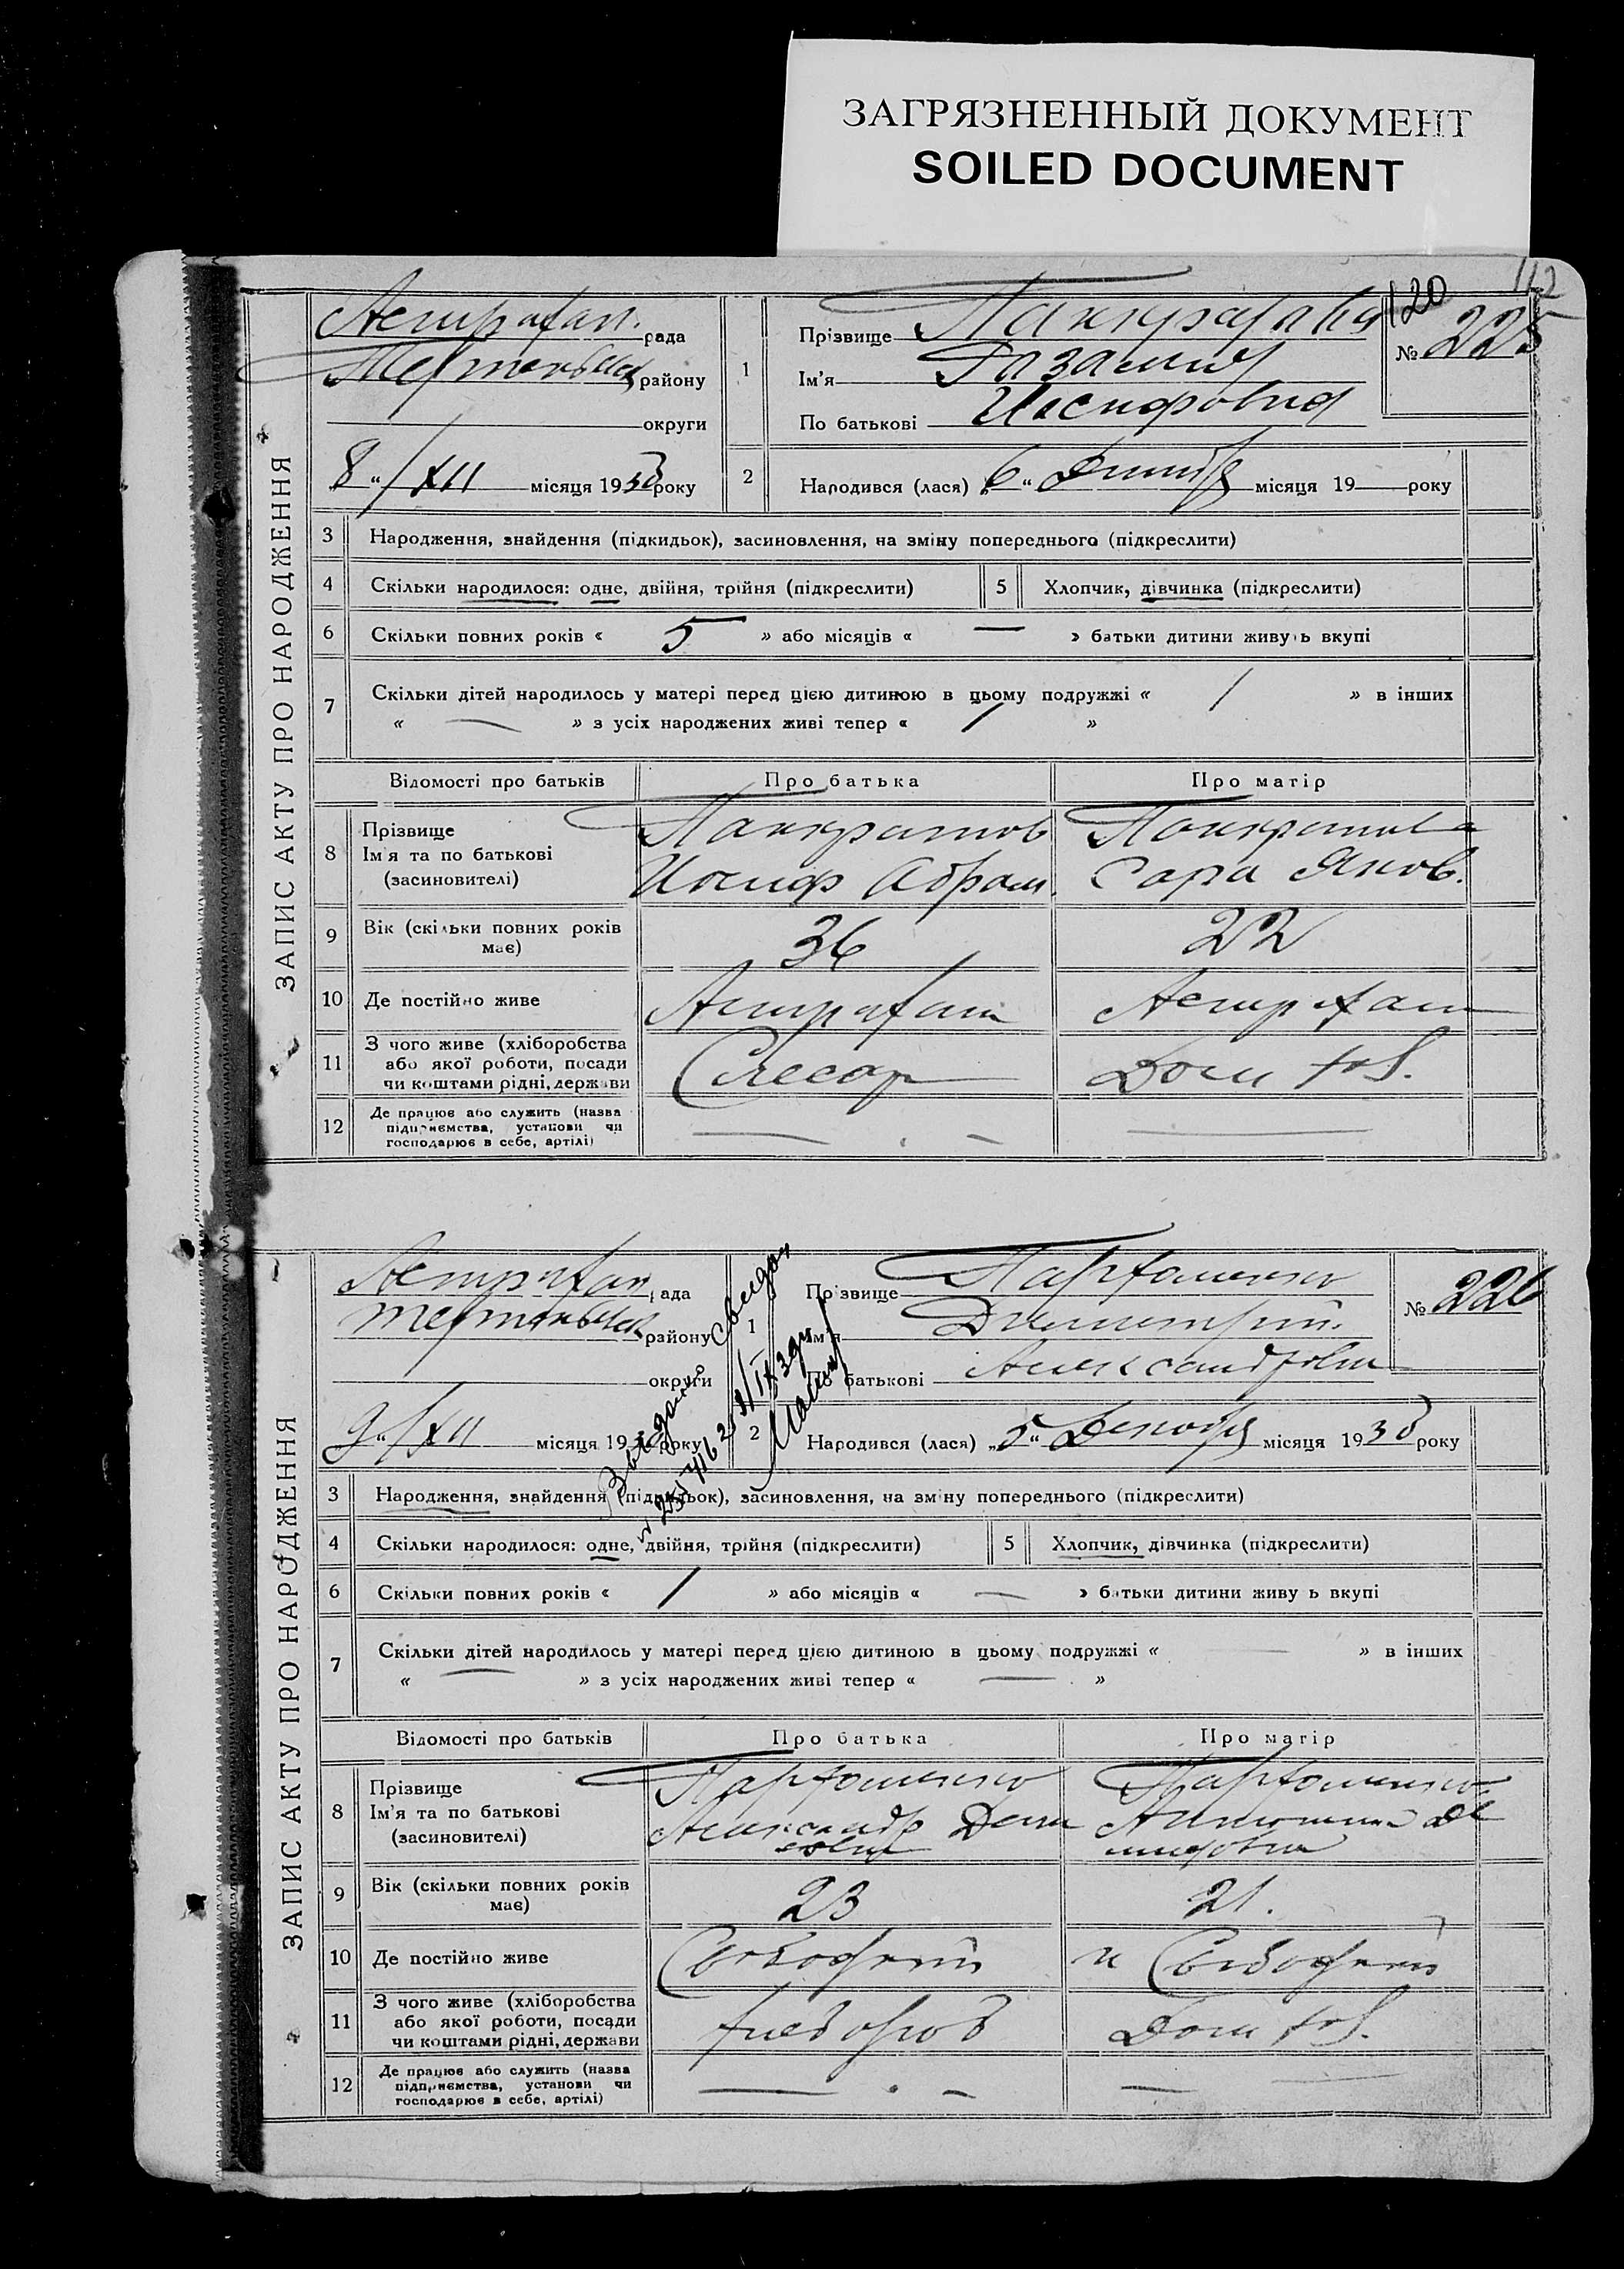 ЗАГРЯЗНЕННЫЙ ДОКУМЕНТ
SOILED DOCUMENT
112
120
ЗАПИС АКТУ ПРО НАРОДЖЕННЯ
рада
району
округи
8 " / XII місяця 1930 року
1
Прізвище
Ім'я
По батькові Иосифовна
№ 225
2 Народився (лася) " 6 " місяця 19 року
3 Народження, знайдення (підкидьок), засиновлення, на зміну попереднього (підкреслити)
4 Скільки народилося: одне, двійня, трійня (підкреслити) 5 Хлопчик, дівчинка (підкреслити)
6 Скільки повних років « 5 » або місяців « — » батьки дитини живуть вкупі
7 Скільки дітей народилось у матері перед цією дитиною в цьому подружжі « 1 » в інших
« — » з усіх народжених живі тепер « 1 »
Відомості про батьків Про батька Про матір
8 Прізвище
Ім'я та по батькові
(засиновителі)
Панкратов
Иосиф Абрам.
Панкратова
Сара Яков.
9 Вік (скільки повних років має) 36 22
10 Де постійно живе
11 З чого живе (хліборобства або якої роботи, посади чи коштами рідні, держави Слесар Дом хоз.
12 Де працює або служить (назва підприємства, установи чи господарює в себе, артілі)
ЗАПИС АКТУ ПРО НАРОДЖЕННЯ
рада
району
округи
9 " / XII місяця 1930 року
1
Прізвище Пархоменко
Ім'я Димитрий.
По батькові Александрович
№ 226
2 Народився (лася) " 5 " Декабря місяця 1930 року
3 Народження, знайдення (підкидьок), засиновлення, на зміну попереднього (підкреслити)
4 Скільки народилося: одне, двійня, трійня (підкреслити) 5 Хлопчик, дівчинка (підкреслити)
6 Скільки повних років « 1 » або місяців « — » батьки дитини живуть вкупі
7 Скільки дітей народилось у матері перед цією дитиною в цьому подружжі « — » в інших
« — » з усіх народжених живі тепер « — »
Відомості про батьків Про батька Про матір
8 Прізвище
Ім'я та по батькові
(засиновителі)
Пархоменко
Александр
Пархоменко
9 Вік (скільки повних років має) 23 21.
10 Де постійно живе
11 З чого живе (хліборобства або якої роботи, посади чи коштами рідні, держави хлебороб Дом хоз.
12 Де працює або служить (назва підприємства, установи чи господарює в себе, артілі)